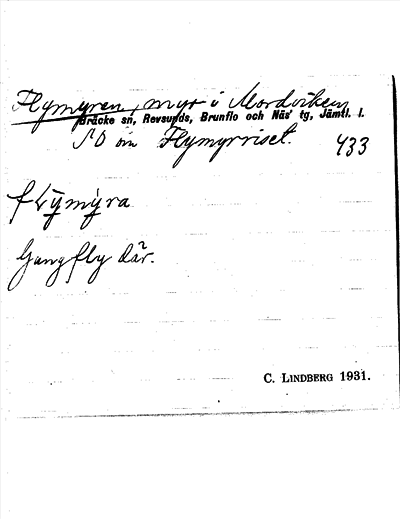 Flymyren, myr i Mordviken
Bräcke sn, Revsunds, Brunflo och Näs' tg, Jämtl. l.
SO om Flymyrriset. 433
flȳmýra
Gungfly där.
C. LINDBERG 1931.